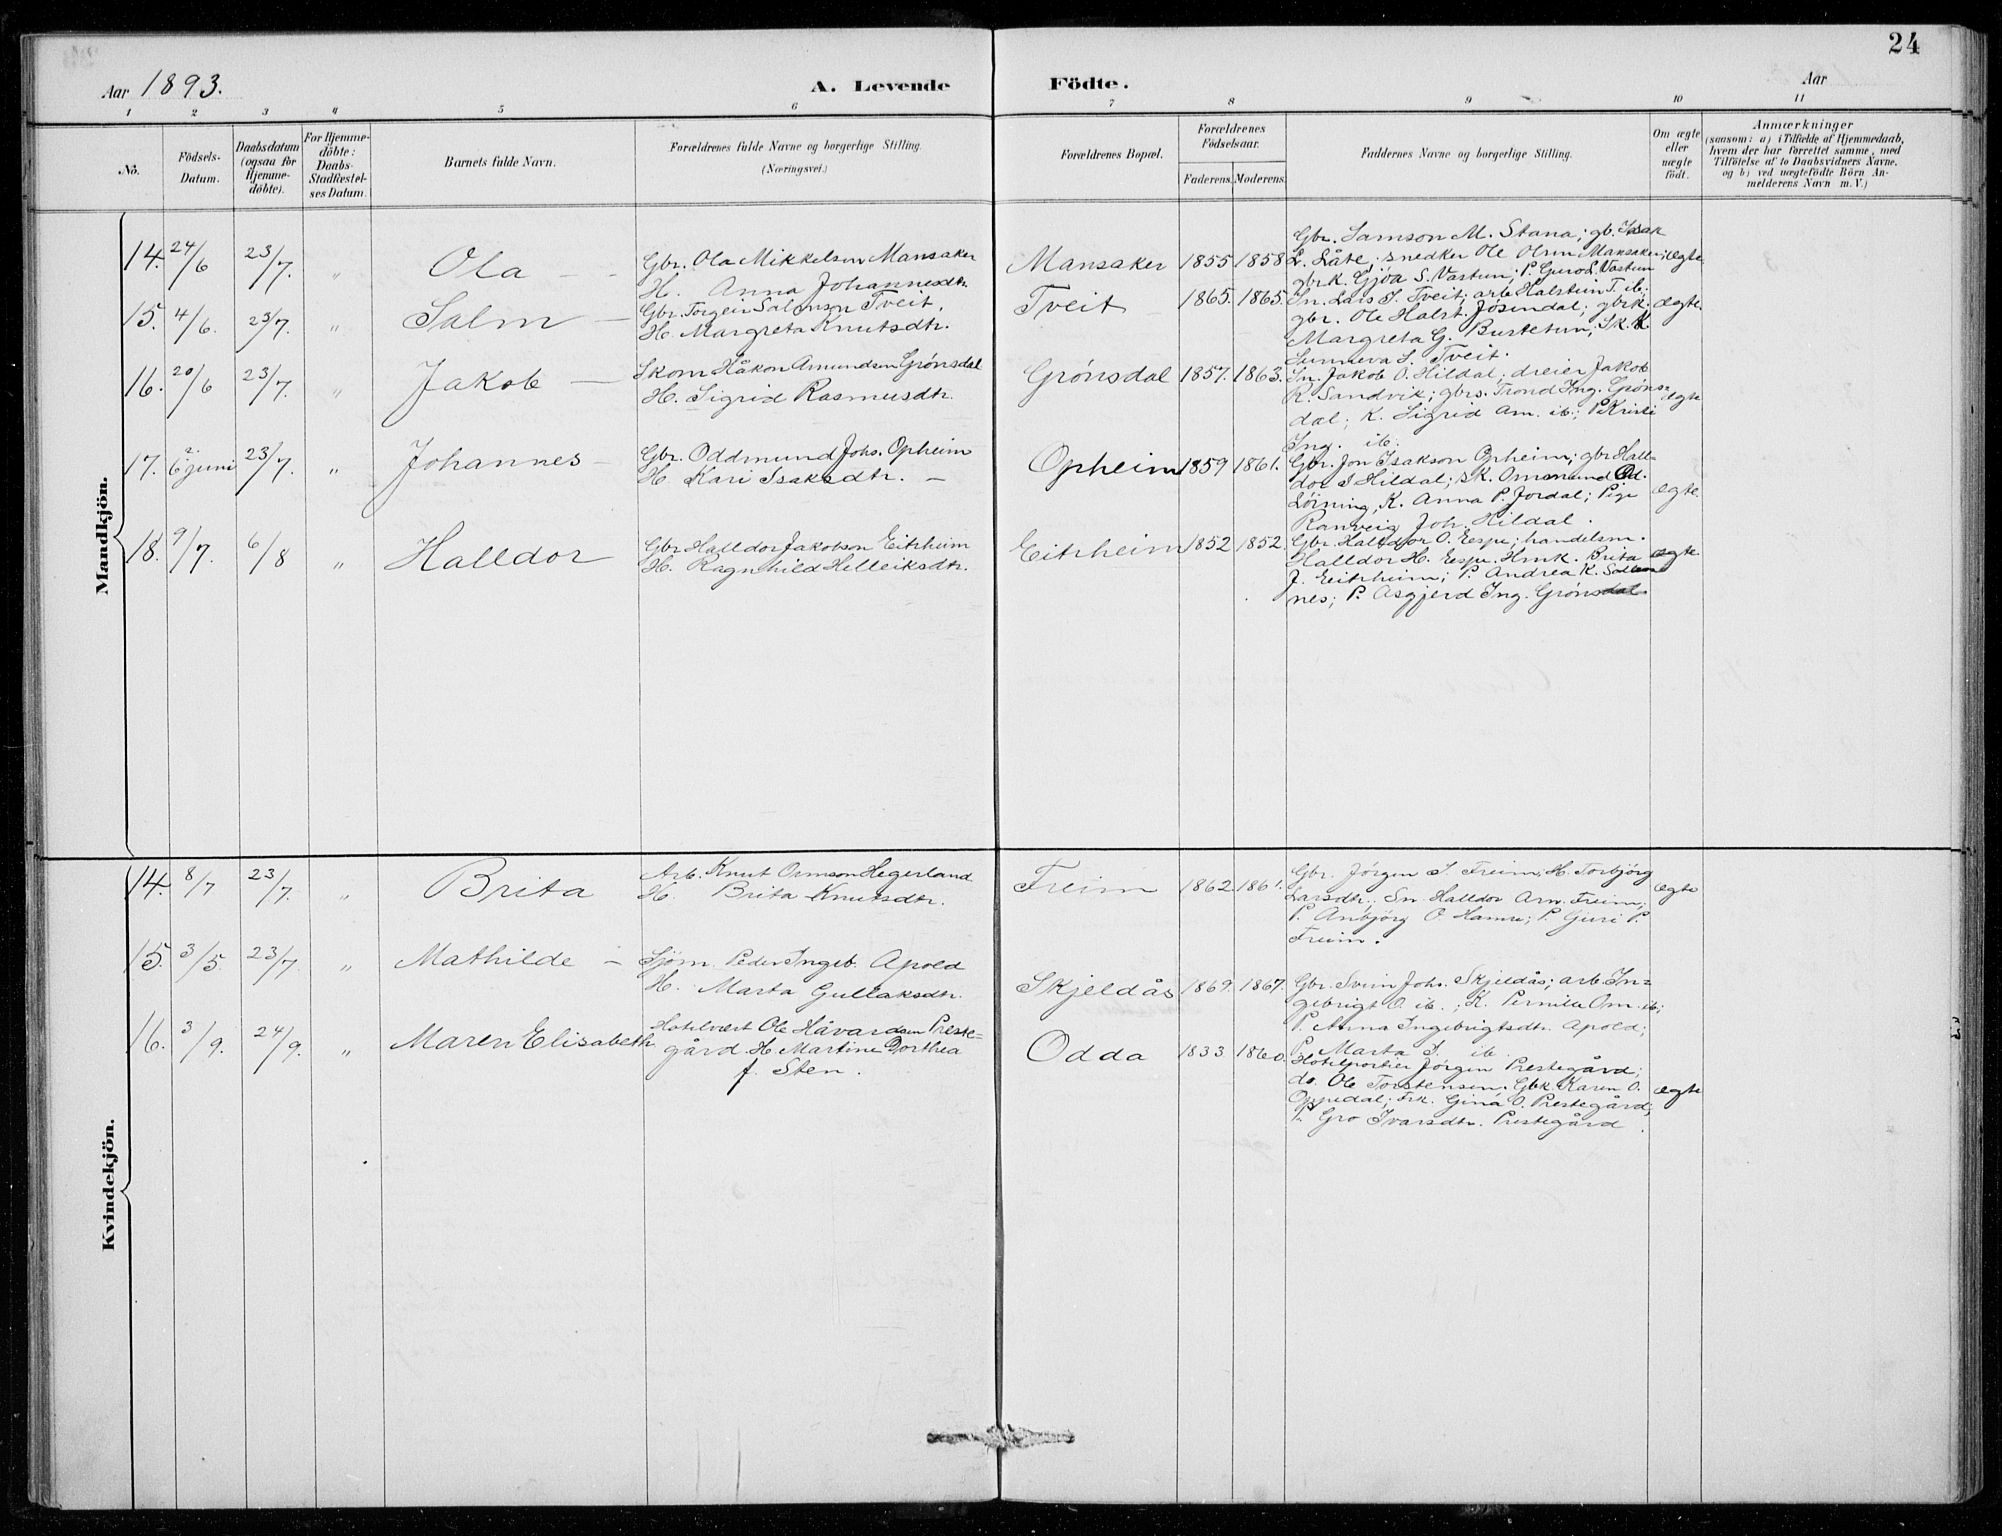 24
Aar 1893.
A. Levende Födte.
Aar
1 2 3 4 5 6 7 8 9 10 11
No.
Födsels-
Datum.
Daabsdatum
(ogsaa for
Hjemme-
döbte).
For Hjemme-
döbte:
Daabs-
Stadfæstel-
ses Datum.
Barnets fulde Navn.
Forældrenes fulde Navne og borgerlige Stilling.
(Næringsvei.)
Forældrenes Bopæl.
Forældrenes
Födselsaar.
Faderens. Moderens.
Faddernes Navne og borgerlige Stilling.
Om ægte
eller
uægte
födt.
Anmærkninger
(saasom: a) i Tilfælde af Hjemmedaab,
hvem der har forrettet samme, med
Tilföielse af to Daabsvidners Navne.
og b) ved uægtefödte Börn An-
melderens Navn m. V.)
Mandkjön.
14. 24/6 23/7. " Ola
Gbr. Ola Mikkelsen Mansaker
H. Anna Johannesdtr.
Mansaker 1855 1858
Gbr. Samson M. Stana; gb. Isak
L. Låte; snedker Ole Olsen Mansaker;
gbrk. Gjöa S. Vastun; P. Guro L. Vastun
ægte
15. 4/6. 23/7. " Salm
Gbr. Torgeir Salmson Tveit,
H. Margreta Knutsdtr.
Tveit 1865. 1865.
Sn. Lars S. Tveit; arb Halstein T. ib.;
gbr. Ole Halst. Jösendal; gbrk.
Margreta G. Bustetun; Sk. K
Sunneva S. Tveit.
ægte.
16. 20/6 23/7. " Jakob
Skom Håkon Amundsen Grönsdal
H. Sigrid Rasmusdtr.
Grönsdal 1857. 1863.
Sn. Jakob O. Hildal; dreier Jakob
R. Sandvik; gbrs. Trond Ing. Gröns=
dal; K. Sigrid Am. ib.; P. Kristi
Ing. ib.
ægte
17. 2 juni 23/7. " Johannes
Gbr. Oddmund Johs. Opheim
H. Kari Isaksdtr.
Opheim 1859 1861.
Gbr. Jon Isakson Opheim; gbr Hall-
dor S Hildal; sk. Ommund Od.
Löining, K. Anna P. Jordal; Pige
Ranveig Joh. Hildal.
ægte.
18. 9/7. 6/8 " Halldor
Gbr Halldor Jakobson Eitrheim
H. Ragnhild Helleiksdtr.
Eitrheim 1852 1852.
Gbr. Halldor O. Espe; handelsm.
Halldor H. Espe. Hmk. Brita
J. Eitrheim; P. Andrea K.
nes; P. Asgjerd Ing. Grönsdal
ægte
Kvindekjön.
14. 8/7 23/7. " Brita
Arb. Knut Ormson Hegerland
H. Brita Knutsdtr.
Freim 1862 1861.
Gbr. Jörgen S. Freim; H. Torbjörg
Larsdtr; Sn Halldor Arn. Freim;
P. Anbjörg O. Hamre; P. Guri P
Freim.
ægte
15. 3/5. 23/7. " Mathilde
Sjöm. Peder Ingeb. Apold
H. Marta Gullaksdtr.
Skjeldås 1869. 1867.
Gbr. Svein Johs. Skjeldås; arb In=
gebrigt O. ib.; K. Pernille Om. ib;
P. Anna Ingebrigtsdtr. Apold;
P. Marta S. ib
16. 3/9. 24/9. " Maren Elisabeth
Hotelvært Ole Håvardsen Preste-
gård. H. Martine Dorthea
f. Sten.
Odda 1833 1860.
Hotelportier Jörgen Prestegård;
do. Ole Torstensen. Gbk. Karen O.
Oppedal; Frk. Gina O. Prestegård;
P. Gro Ivarsdtr. Prestegård.
ægte